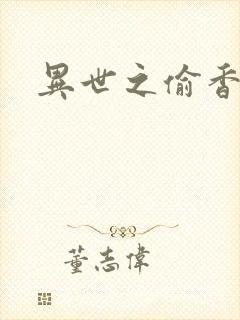 異世之偷香
董志偉